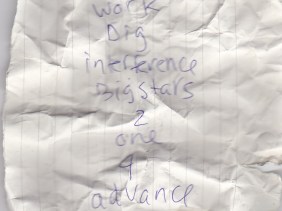 work
Dig
interference
Bigstars
2
one
4
advance